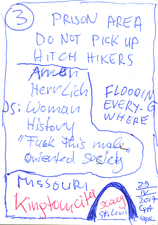 3
PRISON AREA
DO NOT PICK UP
HITCH HIKERS
Amen
Herrlich
Js: Woman
History
"Fuck this male
oriented society
FLOODING
EVERY-
WHERE
MISSOURI
Kingdom city
St. Louis
29
IV
2017